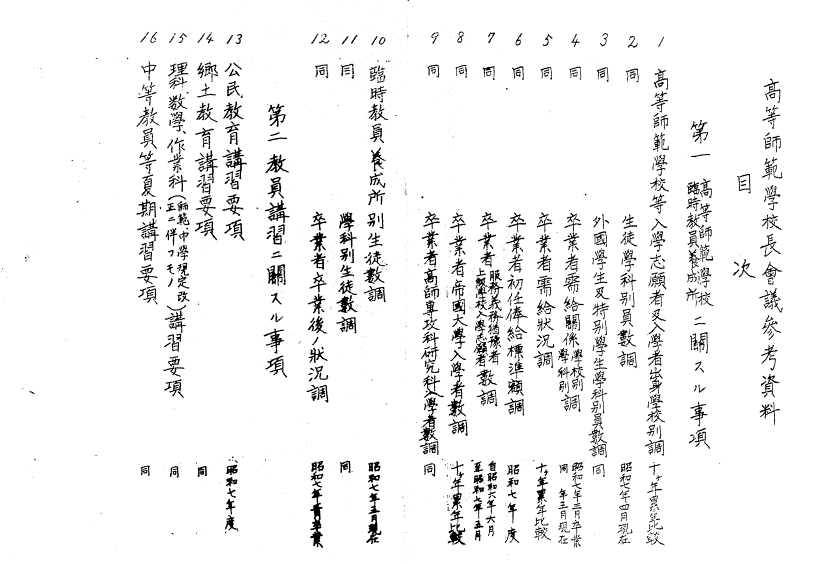 高等師範學校長會議參考資料
目次
第一 高等師範學校 臨時教員養成所 ニ關スル事項
1 高等師範學校等入學志願者及入學者出身學校別調 十ヶ年累年比較
2 同 生徒學科別員數調 昭和七年四月現在
3 同 外國學生及特別學生學科別員數調 同
4 同 卒業者需給關係 學校別 學科別 調 昭和七年三月卒業 同 年三月現在
5 同 卒業者需給狀況調 十ヶ年累年比較
6 同 卒業者初任俸給標準額調 昭和七年度
7 同 卒業者 服務義務猶豫者 上級學校入學志願者 數調 自昭和六年六月 至昭和七年五月
8 同 卒業者帝國大學入學者數調 十ヶ年累年比較
9 同 卒業者高師專攻科研究科入學者數調 同
10 臨時教員養成所別生徒數調 昭和七年三月現在
11 同 學科別生徒數調 同
12 同 卒業者卒業後ノ狀況調 昭和七年三月卒業
第二 教員講習ニ關スル事項
13 公民教育講習要項 昭和七年度
14 鄉土教育講習要項 同
15 理科數學、作業科(師範中學規定改正ニ伴フモノ)講習要項 同
16 中等教員等夏期講習要項 同